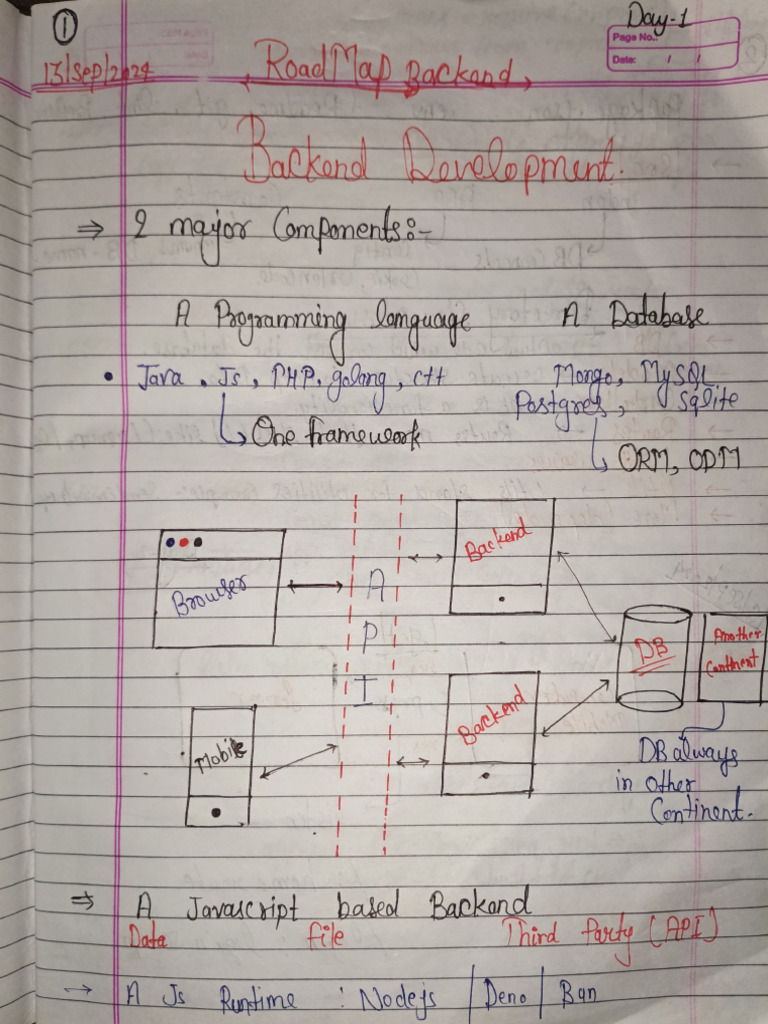 1
Day-1
Page No.:
Date: / /
13/Sep/2024
RoadMap Backend
Backend Development.
⇒ 2 major Components:-
A Programming language A Database
• Java, Js, PHP, golang, c++ Mongo, MySQL
Postgres, Sqlite
One framework
ORM, ODM
Browser
API
Backend
DB
Another
Continent
Mobile
Backend
DB always
in other
Continent.
⇒ A Javascript based Backend
Data file Third Party (API)
→ A Js Runtime : Nodejs | Deno | Bun